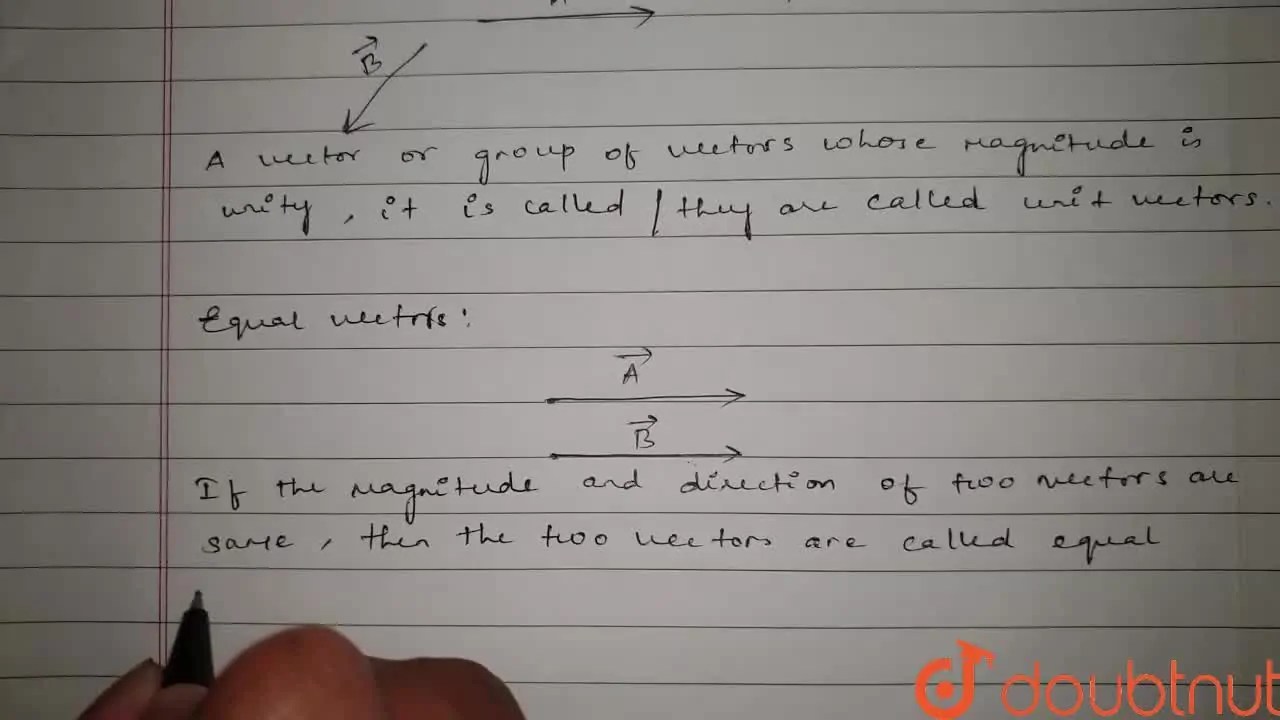 B
A vector or group of vectors whose magnitude is
unity, it is called / they are called unit vectors.
Equal vectors:
A
B
If the magnitude and direction of two vectors are
same, then the two vectors are called equal
doubtnut